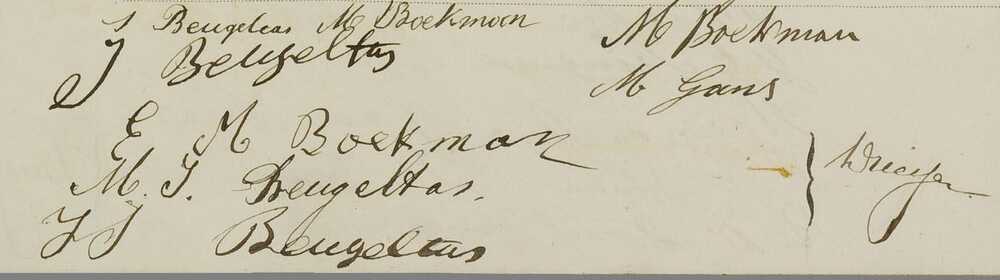 J Beugeltas M Boekman
M Boekman
J Beugeltas
M Gans
E M Boekman
M. J. Beugeltas.
J J Beugeltas